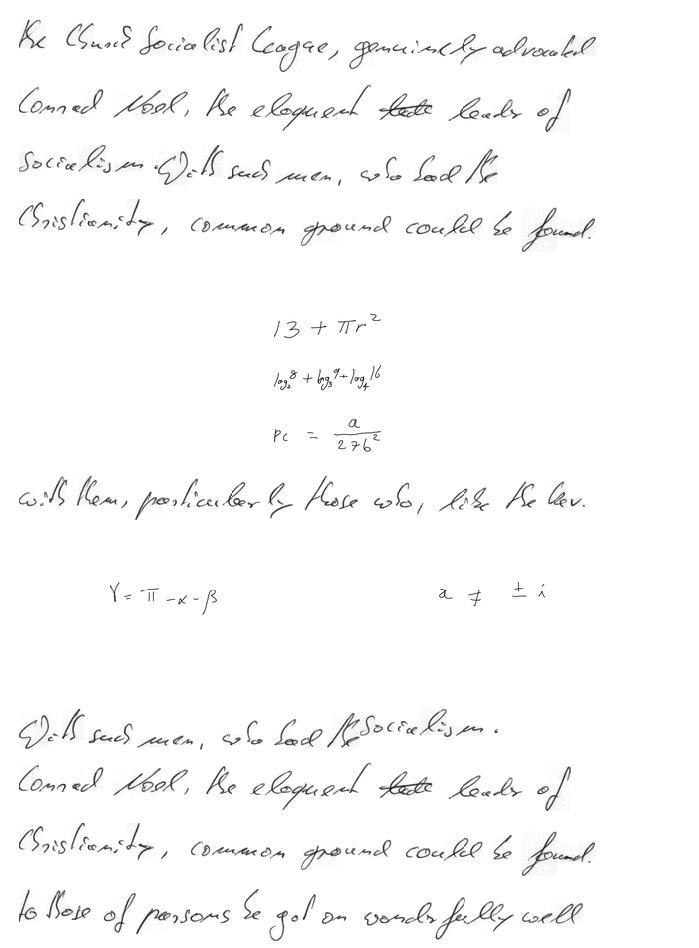 the Church Socialist League, genuinely advocated
Conrad Noel, the eloquent leader of
socialism. With such men, who had the
Christianity, common ground could be found.
13 + πr²
log₂8 + log₃9 + log₄16
Pc = a / 27b²
with them, particularly those who, like the Rev.
γ = π - α - β
a ≠ ± i
With such men, who had the socialism.
Conrad Noel, the eloquent leader of
Christianity, common ground could be found.
to those of parsons he got on wonderfully well